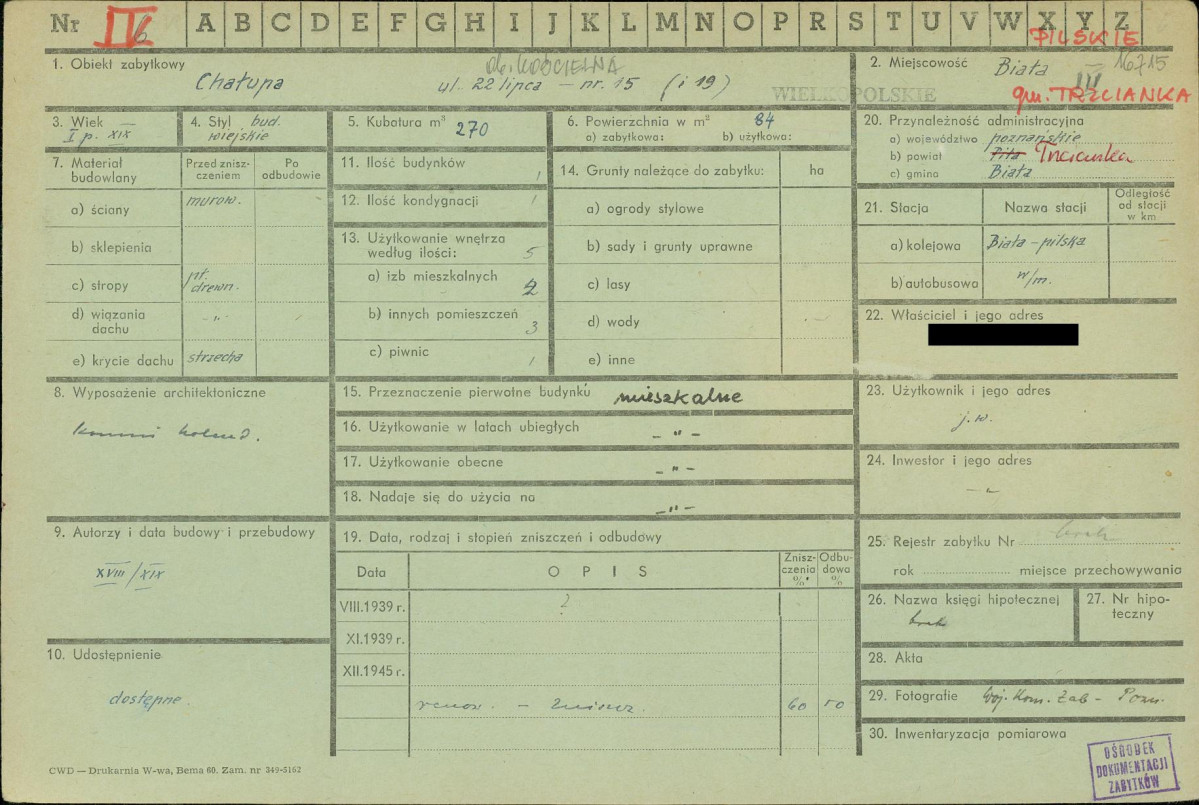 Nr IV b A B C D E F G H I J K L M N O P R S T U V W X Y Z
PILSKIE
1. Obiekt zabytkowy
Ob. KOŚCIELNA
Chałupa ul. 22 lipca – nr. 15 (i 19)
WIELKOPOLSKIE
2. Miejscowość Biała 16715
III
gm. TRZCIANKA
3. Wiek
I p. XIX
4. Styl bud.
wiejskie
5. Kubatura m³ 270
6. Powierzchnia w m² 84
a) zabytkowa: b) użytkowa:
20. Przynależność administracyjna
a) województwo poznańskie
b) powiat Piła Trzcianka
c) gmina Biała
7. Materiał
budowlany
Przed znisz-
czeniem
Po
odbudowie
a) ściany murow.
b) sklepienia
c) stropy pł.
drewn.
d) wiązania
dachu -„-
e) krycie dachu strzecha
11. Ilość budynków 1
12. Ilość kondygnacji 1
13. Użytkowanie wnętrza
według ilości: 5
a) izb mieszkalnych 2
b) innych pomieszczeń 3
c) piwnic 1
14. Grunty należące do zabytku: ha
a) ogrody stylowe
b) sady i grunty uprawne
c) lasy
d) wody
e) inne
21. Stacja
Nazwa stacji
Odległość
od stacji
w km
a) kolejowa Biała-pilska
b) autobusowa w/m.
22. Właściciel i jego adres
8. Wyposażenie architektoniczne
9. Autorzy i data budowy i przebudowy
XVIII/XIX
10. Udostępnienie
dostępne
15. Przeznaczenie pierwotne budynku mieszkalne
16. Użytkowanie w latach ubiegłych -„-
17. Użytkowanie obecne -„-
18. Nadaje się do użycia na -„-
19. Data, rodzaj i stopień zniszczeń i odbudowy
Data
O P I S
Znisz-
czenia
%
Odbu-
dowa
%
VIII.1939 r. ?
XI.1939 r.
XII.1945 r.
60
23. Użytkownik i jego adres
j.w.
24. Inwestor i jego adres
-„-
25. Rejestr zabytku Nr brak
rok miejsce przechowywania
26. Nazwa księgi hipotecznej
brak
27. Nr hipo-
teczny
28. Akta
29. Fotografie Woj. Kom. Zab – Pozn.
30. Inwentaryzacja pomiarowa
OŚRODEK
DOKUMENTACJI
ZABYTKÓW
CWD — Drukarnia W-wa, Bema 60. Zam. nr 349-5162